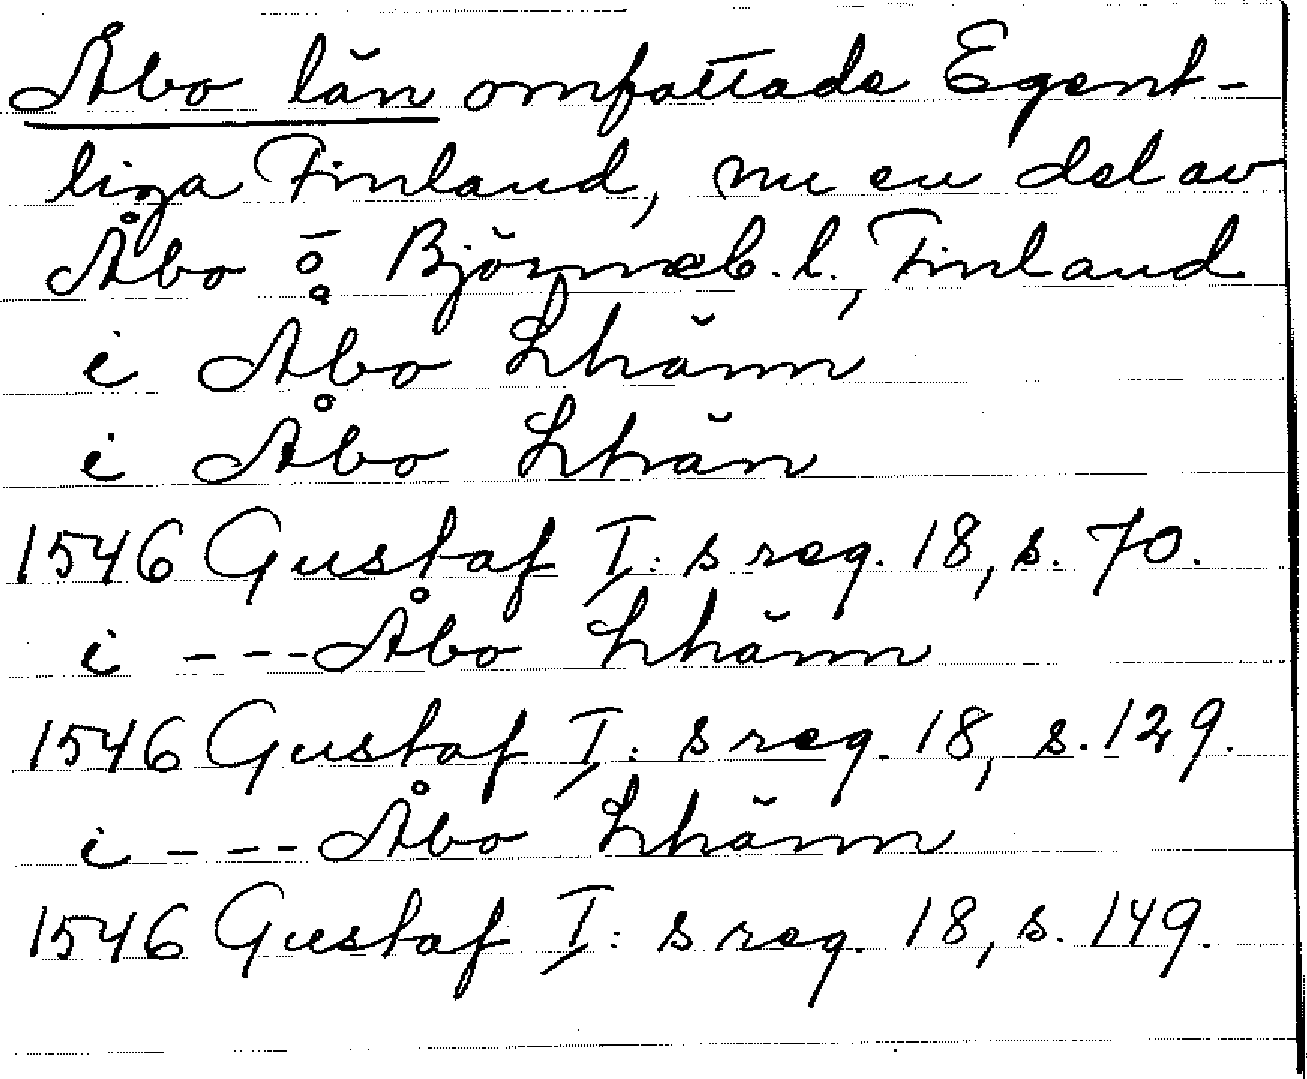 Åbo län omfattade Egent-
liga Finland, nu en del av
Åbo o Björneb. l., Finland
i Åbo Lhänn
i Åbo Lhän
1546 Gustaf I: s reg. 18, s. 70.
i --- Åbo Lhänn
1546 Gustaf I: s reg. 18, s. 129.
i --- Åbo Lhänn
1546 Gustaf I: s reg. 18, s. 149.